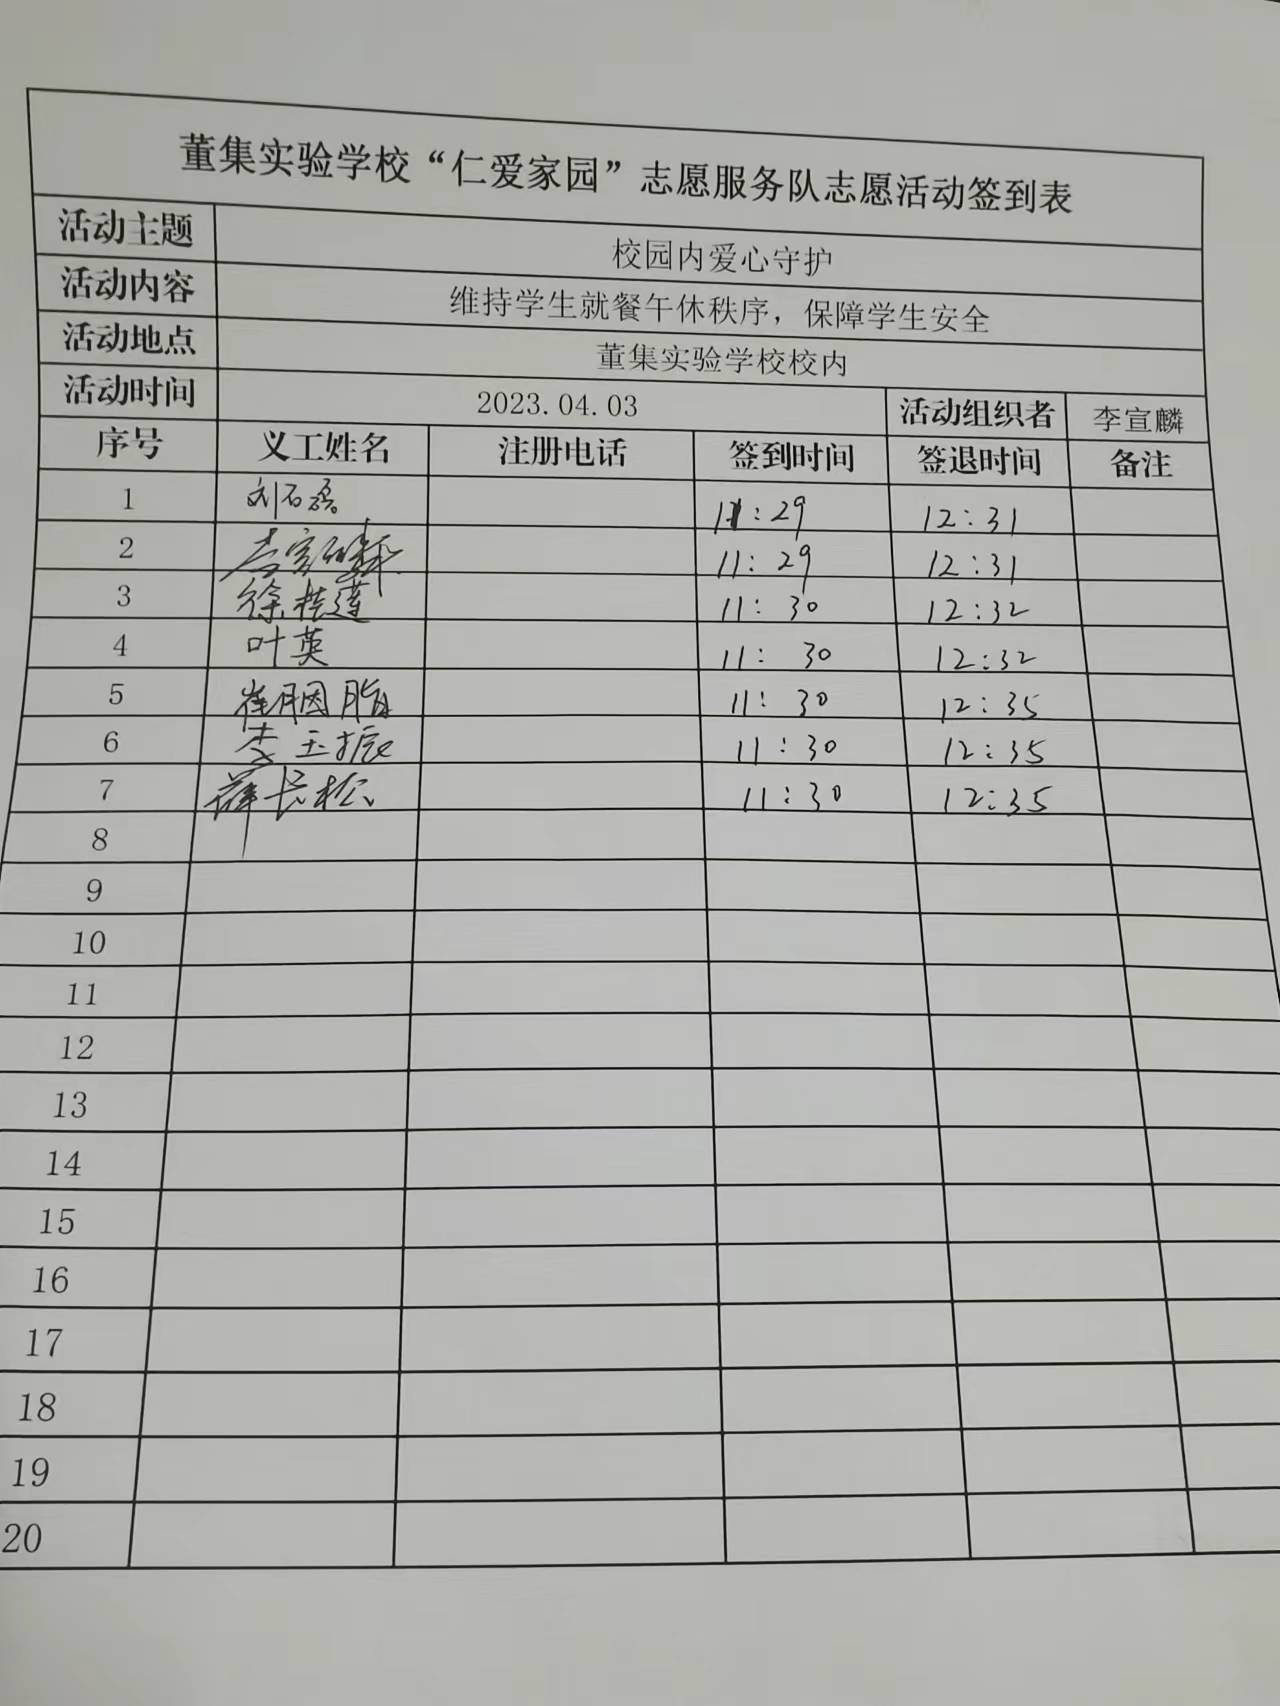 董集实验学校“仁爱家园”志愿服务队志愿活动签到表
活动主题 校园内爱心守护
活动内容 维持学生就餐午休秩序，保障学生安全
活动地点 董集实验学校校内
活动时间 2023.04.03 活动组织者 李宣麟
序号 义工姓名 注册电话 签到时间 签退时间 备注
1 刘石磊 11:29 12:31
2 11:29 12:31
3 徐桂莲 11:30 12:32
4 叶英 11:30 12:32
5 崔胭脂 11:30 12:35
6 李玉振 11:30 12:35
7 薛长松 11:30 12:35
8
9
10
11
12
13
14
15
16
17
18
19
20